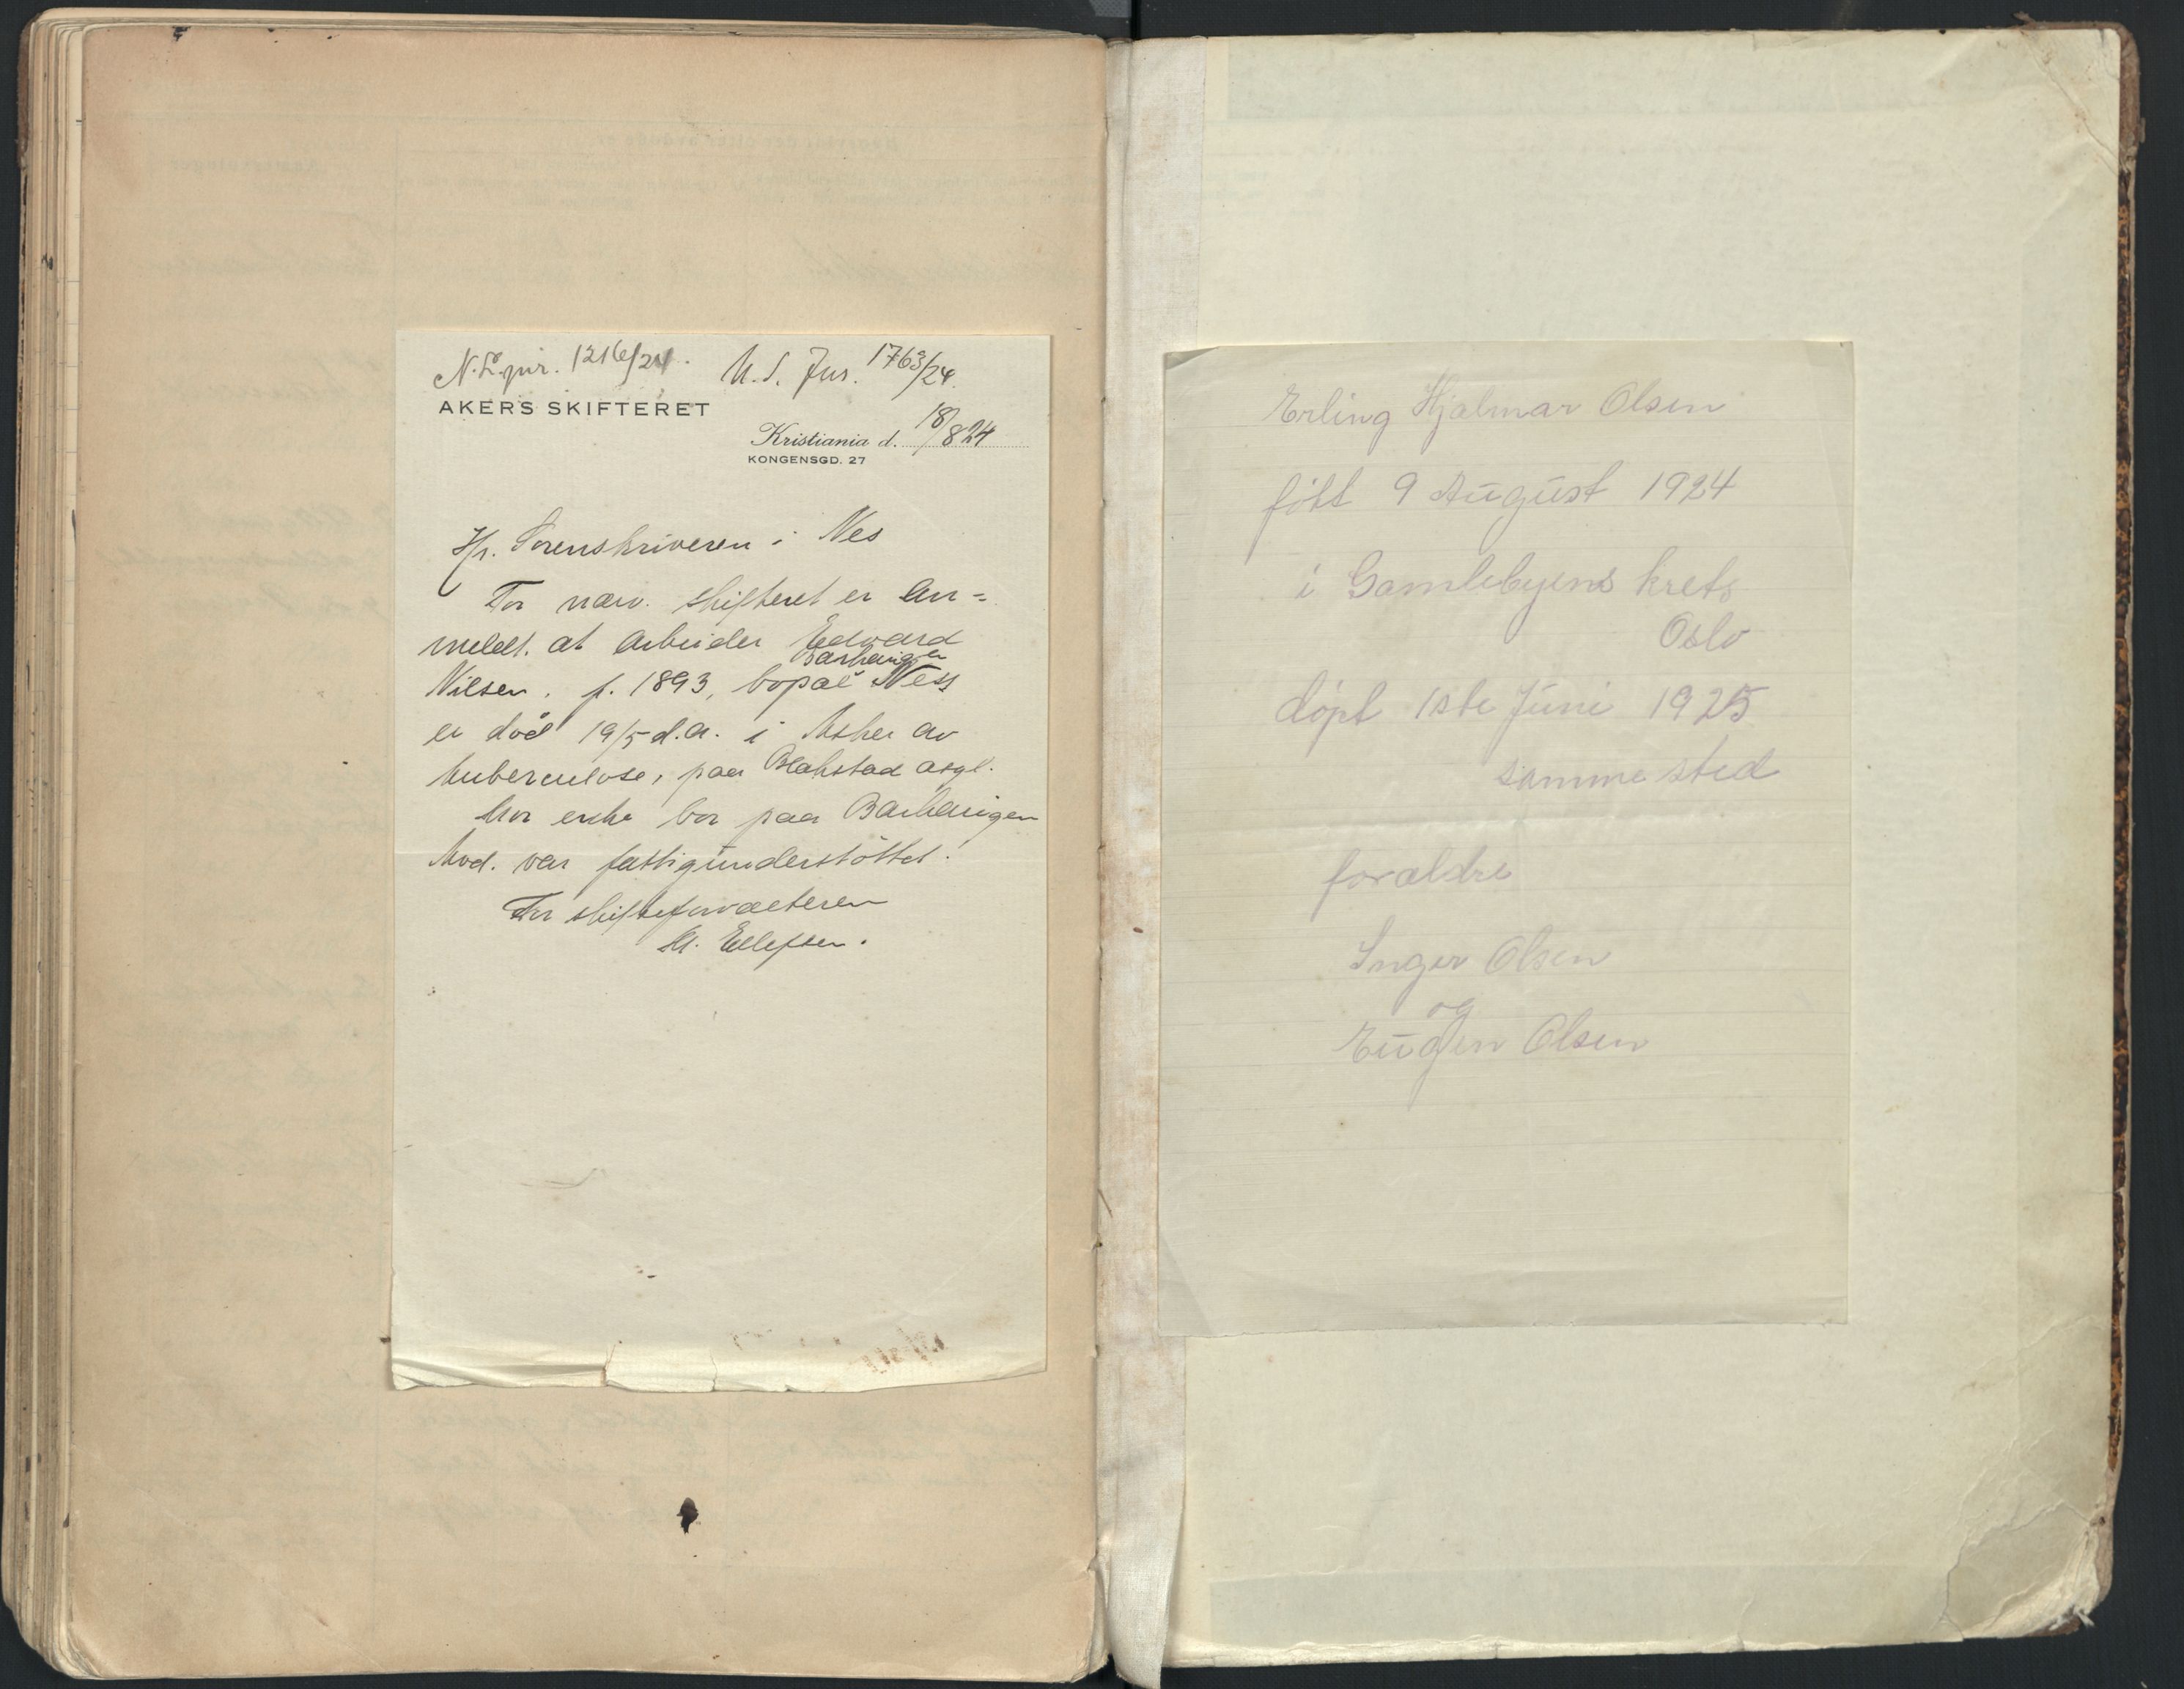 N.L. jnr. 1216/24.
A.S. Jnr. 1763/24.
AKERS SKIFTERET
Kristiania d. 18/8 24
KONGENSGD. 27
Hr. Sorenskriveren i Nes
For nærv. skifteret er an-
meldt. at arbeider Edvard
Nilsen. f. 1893, bopæl Ness
Barhaugen
er død 19/5 d.a. i Asker av
tuberculose, paa Blakstad asyl.
Hvor enke bor paa Barhaugen
Avd. var fattigunderstøttet.
For skifteforvalteren
M. Ellefsen.
Erling Hjalmar Olsen
fött 9 August 1924
i Gamlebyens krets
Oslo
döpt 1ste Juni 1925
samme sted
foraldre
Inger Olsen
og
Eugen Olsen